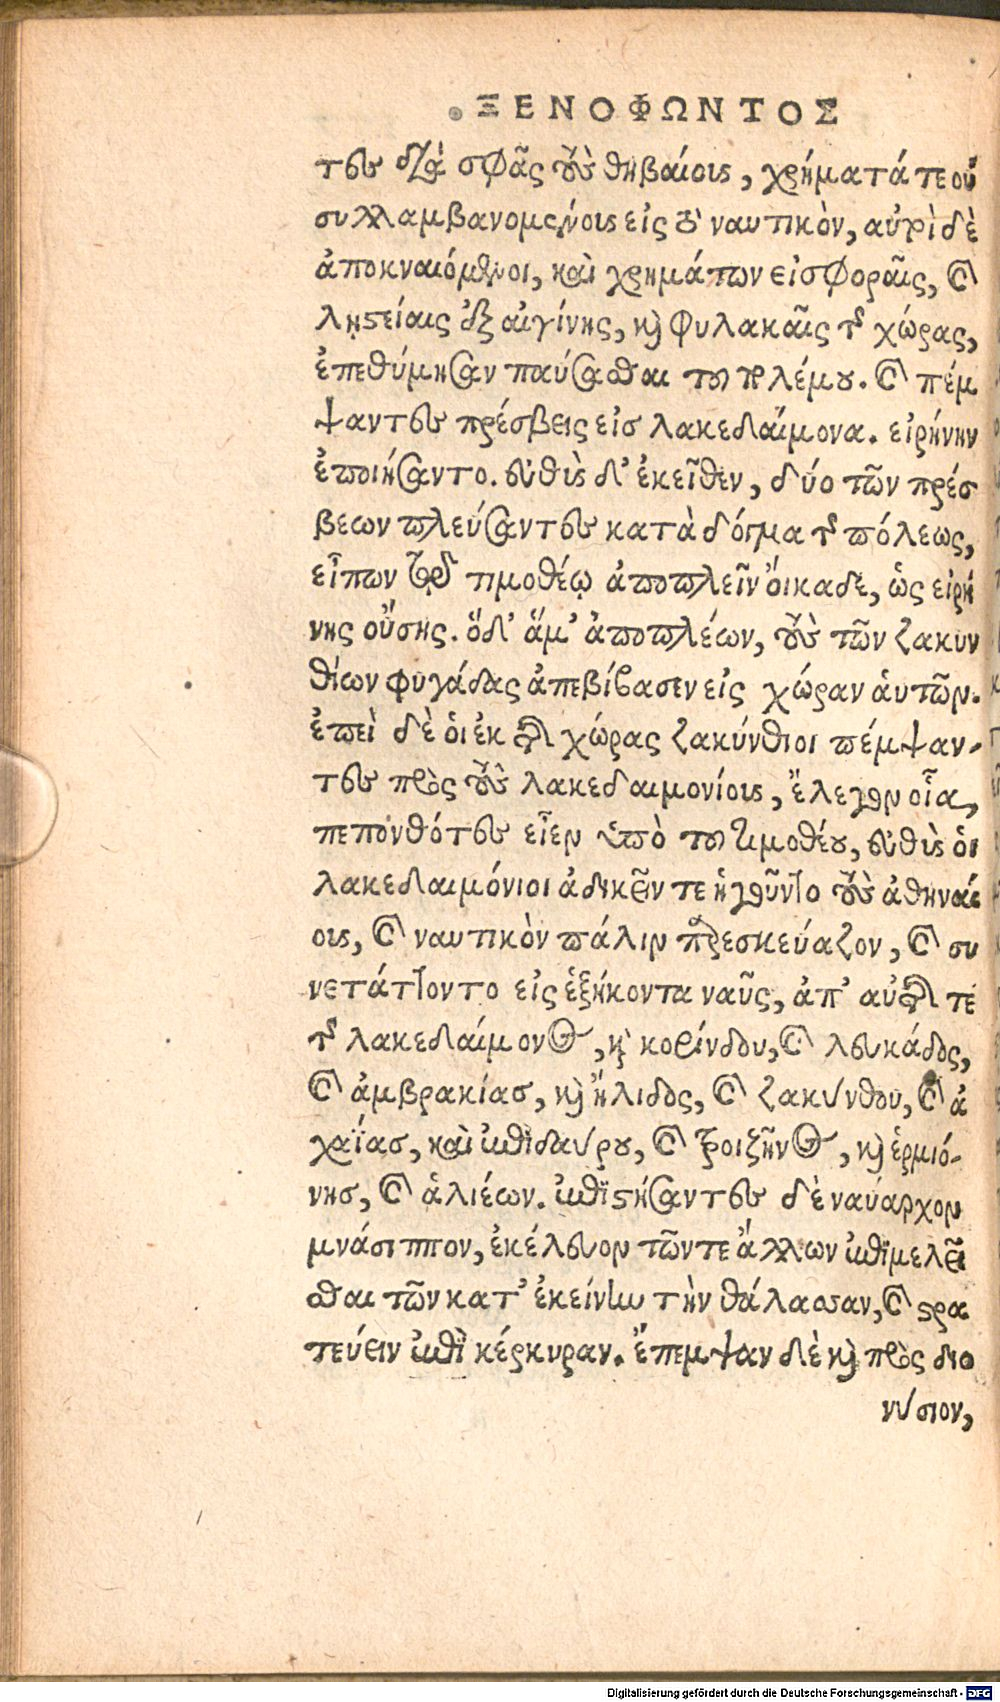 ΞΕΝΟΦΩΝΤΟΣ
τες διὰ σφᾶς τοὺς θηβαίους, χρήματά τε οὐ
συλλαμβανομένους εἰς τὸ ναυτικὸν, αὐτοὶ δὲ
ἀποκναιόμενοι, καὶ χρημάτων εἰσφοραῖς, καὶ
λῃστείαις ἐξ αἰγίνης, καὶ φυλακαῖς τῆς χώρας,
ἐπεθύμησαν παύσασθαι τοῦ πολέμου. καὶ πέμ
ψαντες πρέσβεις εἰσ λακεδαίμονα. εἰρήνην
ἐποιήσαντο. εὐθὺς δ' ἐκεῖθεν, δύο τῶν πρέσ
βεων πλεύσαντες κατὰ δόγμα τῆς πόλεως,
εἶπον τῷ τιμοθέῳ ἀποπλεῖν οἴκαδε, ὡς εἰρή
νης οὔσης. ὅδ' ἅμ' ἀποπλέων, τοὺς τῶν ζακυν
θίων φυγάδας ἀπεβίβασεν εἰς χώραν ἀυτῶν.
ἐπεὶ δὲ ὁι ἐκ τῆς χώρας ζακύνθιοι πέμψαν-
τες πρὸς τοὺς λακεδαιμονίους, ἔλεγον οἷα,
πεπονθότες εἶεν ὑπὸ τοῦ τιμοθέου, εὐθὺς ὁι
λακεδαιμόνιοι ἀδικεῖν τε ἡγοῦντο τοὺς ἀθηναί
ους, καὶ ναυτικὸν πάλιν παρεσκεύαζον, καὶ συ
νετάττοντο εἰς ἑξήκοντα ναῦς, ἀπ' αὐτῆς τέ
τῆς λακεδαίμονος, καὶ κορίνθου, καὶ λευκάδος,
καὶ ἀμβρακίασ, καὶ ἤλιδος, καὶ ζακύνθου, καὶ ἀ
χαΐασ, καὶ ἐπιδαύρου, καὶ τροιζῆνος, καὶ ἑρμιό-
νησ, καὶ ἁλιέων. ἐπιστήσαντες δὲ ναύαρχον
μνάσιππον, ἐκέλευον τῶν τε ἄλλων ἐπιμελεῖ
σθαι τῶν κατ' ἐκείνην τὴν θάλασσαν, καὶ στρα
τεύειν ἐπὶ κέρκυραν. ἔπεμψαν δὲ καὶ πρὸς διο
νύσιον,
Digitalisierung gefördert durch die Deutsche Forschungsgemeinschaft - DFG